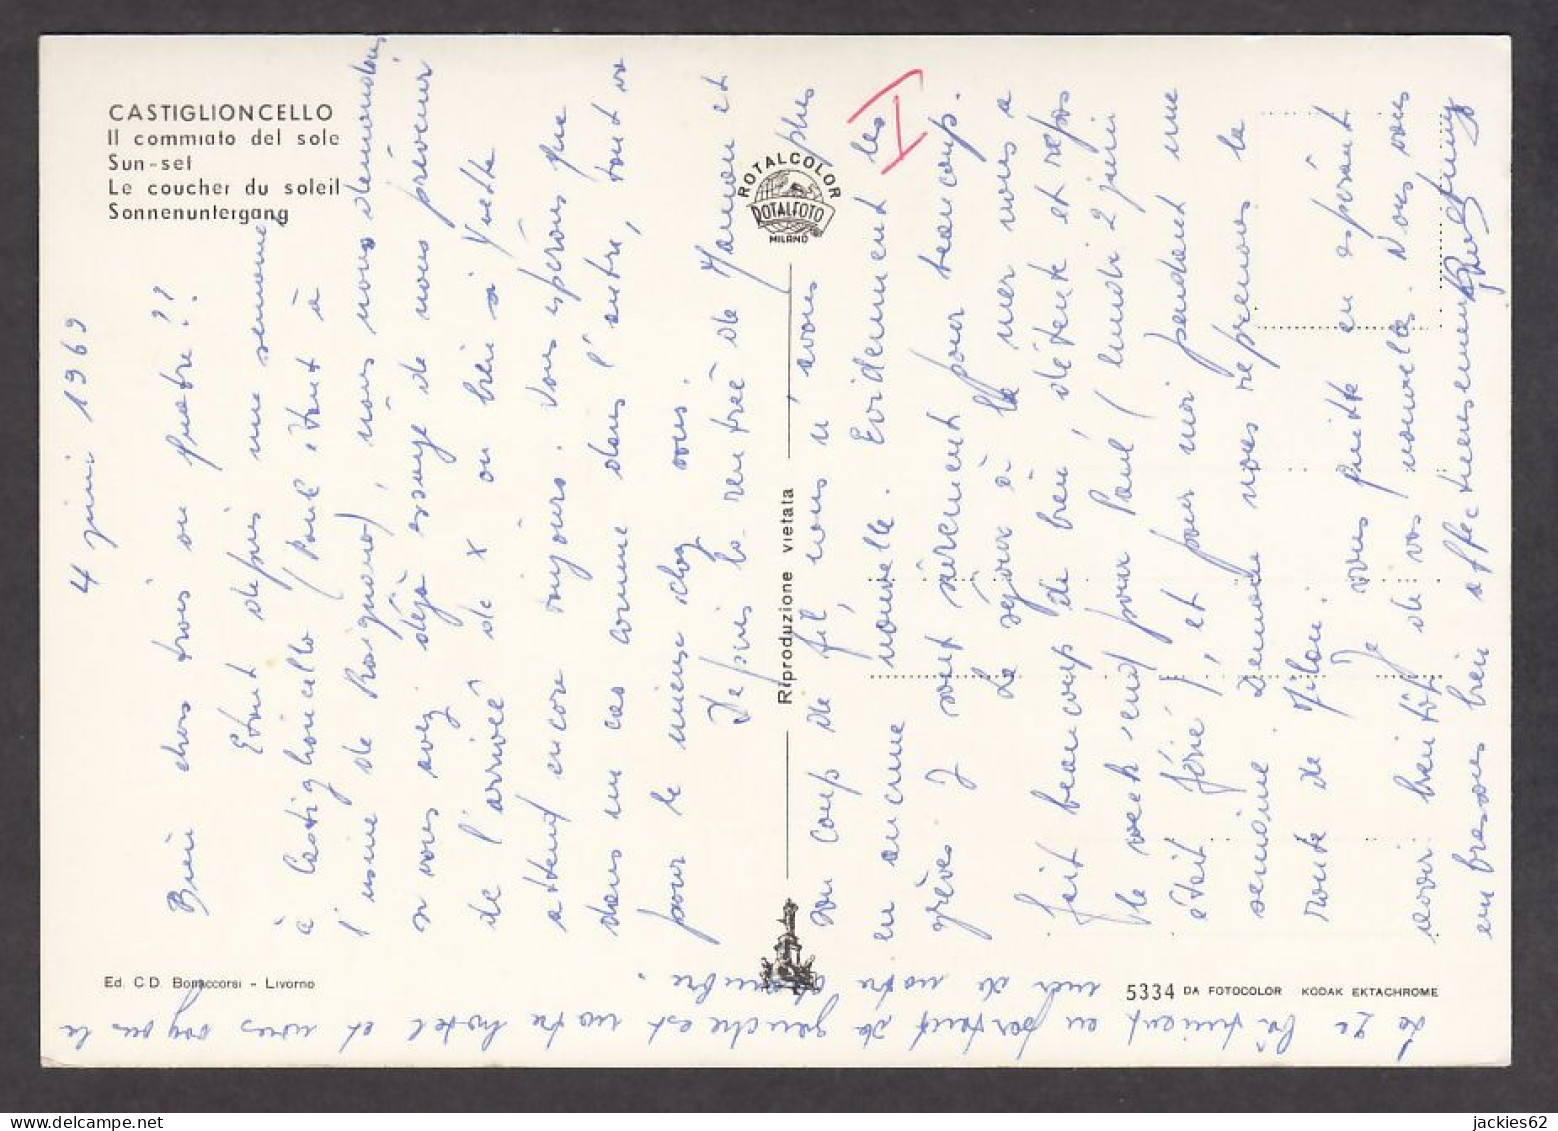 CASTIGLIONCELLO
Il commiato del sole
Sun-set
Le coucher du soleil
Sonnenuntergang
4 juin 1969
Bien chers trois ou quatre??
Etant depuis une semaine
à Castiglioncello (Paul étant à
l'usine de Rosignano), nous nous demandons
si vous avez déjà essayé de nous prévenir
de l'arrivée de X ou bien si Yvette
attend encore toujours. Nous espérons que
dans un cas comme dans l'autre, tout va
pour le mieux chez vous.
Depuis la rentrée de Manon et
son coup de fil, nous n'avons plus
eu aucune nouvelle. Evidemment les
grèves y sont sûrement pour beaucoup.
Le séjour à la mer nous a
fait beaucoup de bien, détente et repos
le week-end pour Paul (lundi 2 juin
était férié), et pour moi pendant une
semaine. Demain nous reprenons la
route de Milan.
Je vous quitte en espérant
avoir bientôt de vos nouvelles. Nous vous
embrassons bien affectueusement
Le 2e bâtiment en partant de gauche est notre hôtel et nous voyons la
mer de notre chambre.
ROTALCOLOR
ROTALFOTO
MILANO
Riproduzione vietata
Ed. C.D. Bonaccorsi - Livorno
5334 DA FOTOCOLOR KODAK EKTACHROME
jackies62